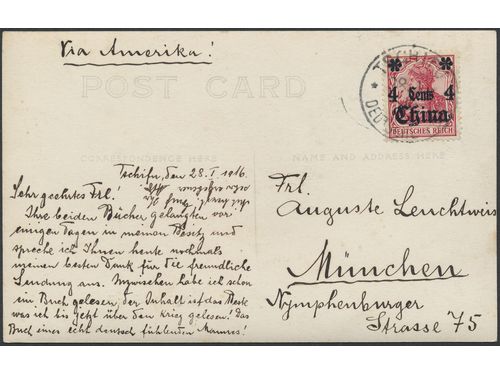 Via Amerika!
POST CARD
4 Cents 4
China
DEUTSCHES REICH
CORRESPONDENCE HERE
NAME AND ADDRESS HERE
Tschifu, den 28. I. 1916.
Sehr geehrtes Frl.!
Ihre beiden Bücher gelangten vor
einigen Tagen in meinen Besitz und
spreche ich Ihnen heute nochmals
meinen besten Dank für die freundliche
Sendung aus. Inzwischen habe ich schon
ein Buch gelesen, der Inhalt ist das Beste
was ich bis jetzt über den Krieg gelesen! Das
Buch eines echt deutsch fühlenden Mannes!
Frl.
Auguste Leuchtweis
München
Nymphenburger
Strasse 75